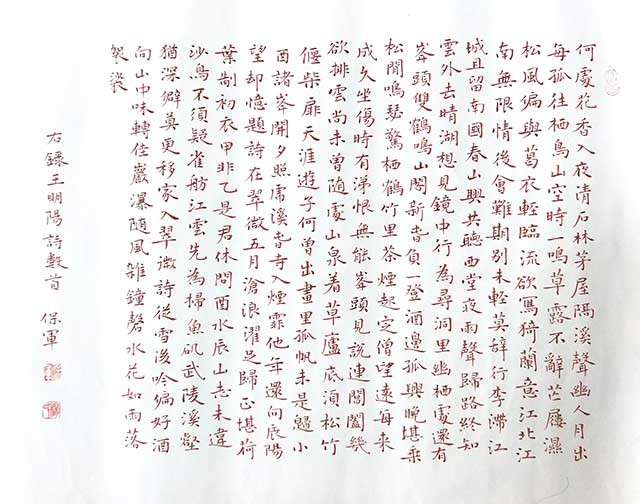 何處花香入夜清石林茅屋隔溪聲幽人月出
每孤往栖鳥山空時一鳴草露不辭芒屨濕
松風偏與葛衣輕臨流欲寫猗蘭意江北江
南無限情後會難期別未輕莫辭行李滯江
城且留南國春山興共聽西堂夜雨聲歸路終知
雲外去晴湖想見鏡中行為尋洞里幽栖處還有
峯頭雙鶴鳴山閣新春負一登酒邊孤興晚堪乘
松間鳴瑟驚栖鶴竹里茶煙起定僧望遠每來
成久坐傷時有涕恨無能峯頭見說連閶闔幾
欲排雲尚未曾隨處山泉着草廬底須松竹
偃柴扉天涯遊子何曾出畫里孤帆未是歸小
酉諸峯開夕照虎溪春寺入煙霏他年還向辰陽
望却憶題詩在翠微五月滄浪濯足歸正堪荷
葉制初衣甲非乙是君休問酉水辰山志未違
沙鳥不須疑雀舫江雲先為掃魚磯武陵溪壑
猶深僻莫更移家入翠微詩從雪後吟偏好酒
向山中味轉佳巖瀑隨風雜鐘磬水花如雨落
袈裟
右錄王明陽詩數首 保軍